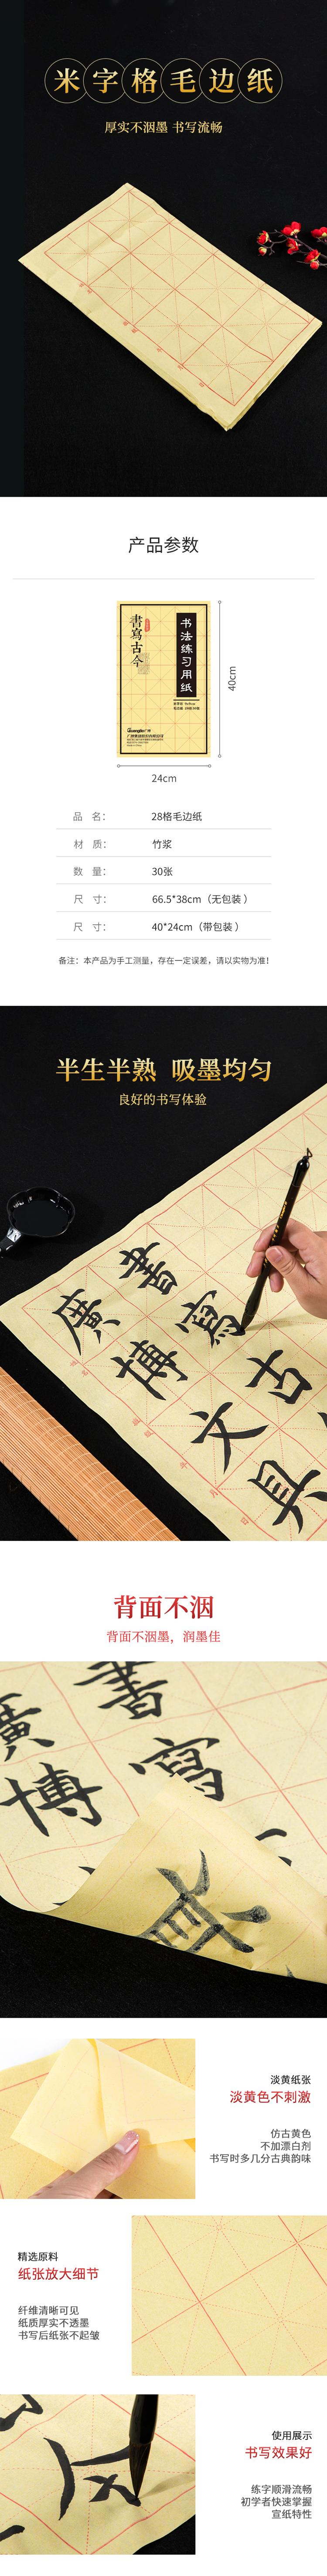 米字格毛边纸
厚实不洇墨 书写流畅
产品参数
書寫古今
书法练习用纸
Guangbo 广博
40cm
24cm
品 名： 28格毛边纸
材 质： 竹浆
数 量： 30张
尺 寸： 66.5*38cm（无包装）
尺 寸： 40*24cm（带包装）
备注：本产品为手工测量，存在一定误差，请以实物为准！
半生半熟 吸墨均匀
良好的书写体验
書寫古
廣博文具
背面不洇
背面不洇墨，润墨佳
書寫
廣博
淡黄纸张
淡黄色不刺激
仿古黄色
不加漂白剂
书写时多几分古典韵味
精选原料
纸张放大细节
纤维清晰可见
纸质厚实不透墨
书写后纸张不起皱
使用展示
书写效果好
练字顺滑流畅
初学者快速掌握
宣纸特性